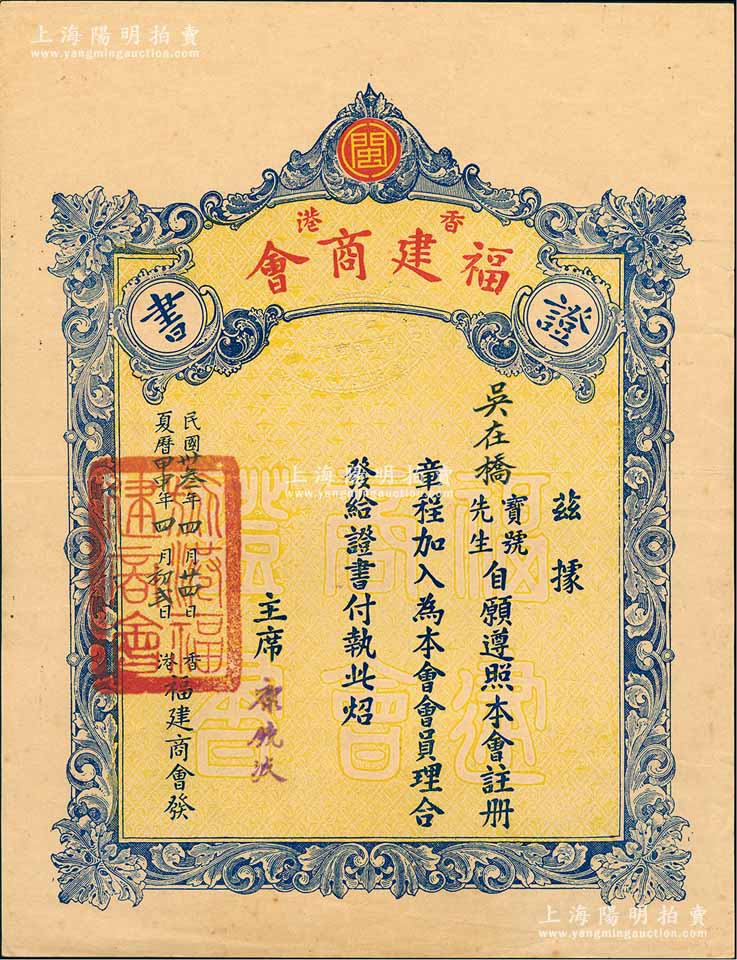 上海陽明拍賣
www.yangmingauction.com
閩
香港
福建商會
證書
茲據
吳在橋
寶號
先生
自願遵照本會註册
章程加入為本會會員理合
發給證書付執此炤
主席
民國卅叁年四月廿四日
夏曆甲申年四月初弍日
香港
福建商會發
福建商會證書
上海陽明拍賣
www.yangmingauction.com
上海陽明拍賣
www.yangmingauction.com